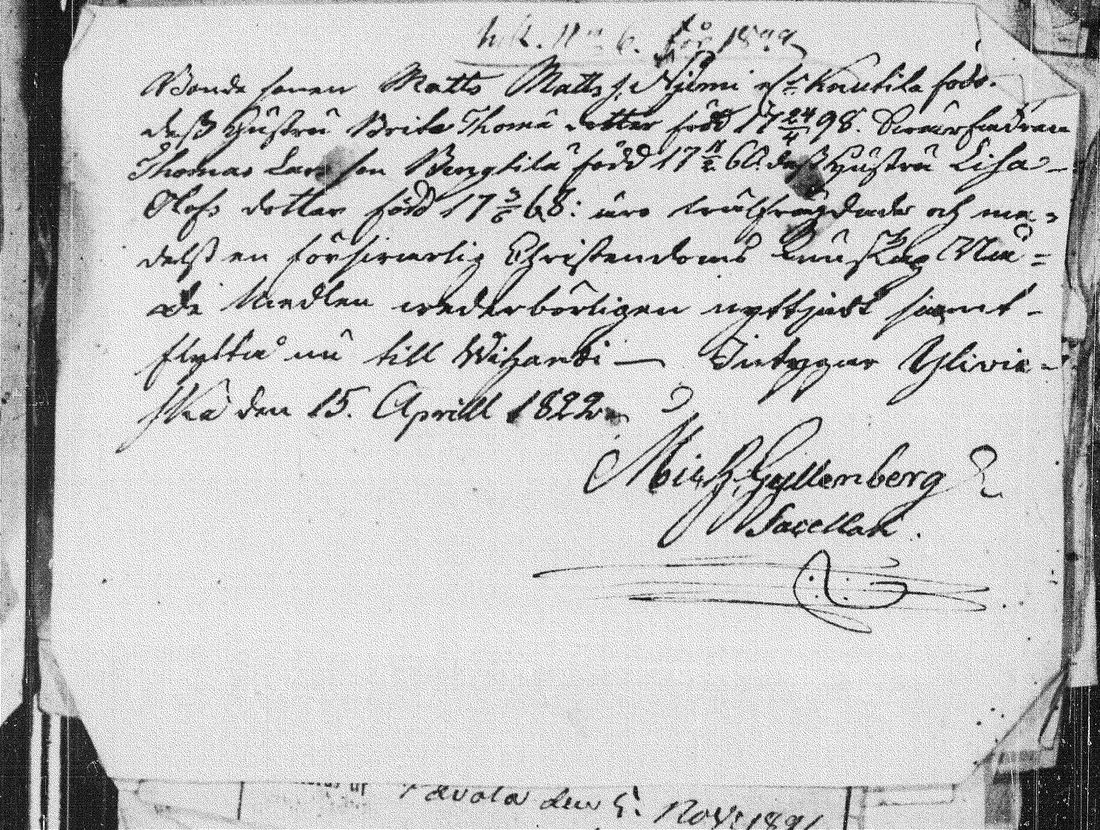 N:o 6. för 1822
Bonde sonen Matts Matts s. Niemi Kautila född
deß Hustru Brita Thomæ dotter född 17 24/4 98. Svärfadren
Thomas Larsson Bengtila född 17 11/2 60. deß Hustru Lisa
Olofs dotter född 17 3/6 68: äro och me-
delst en försvarlig Christendoms kunskap Nå-
de Medlen wederbörligen nyttjadt samt
flytta nu till Wihanti — Intygar Ylivie-
ska den 15. Aprill 1822.
Mich. Gyllenberg
Sacellan.
Pavola den 5. Nov: 1821